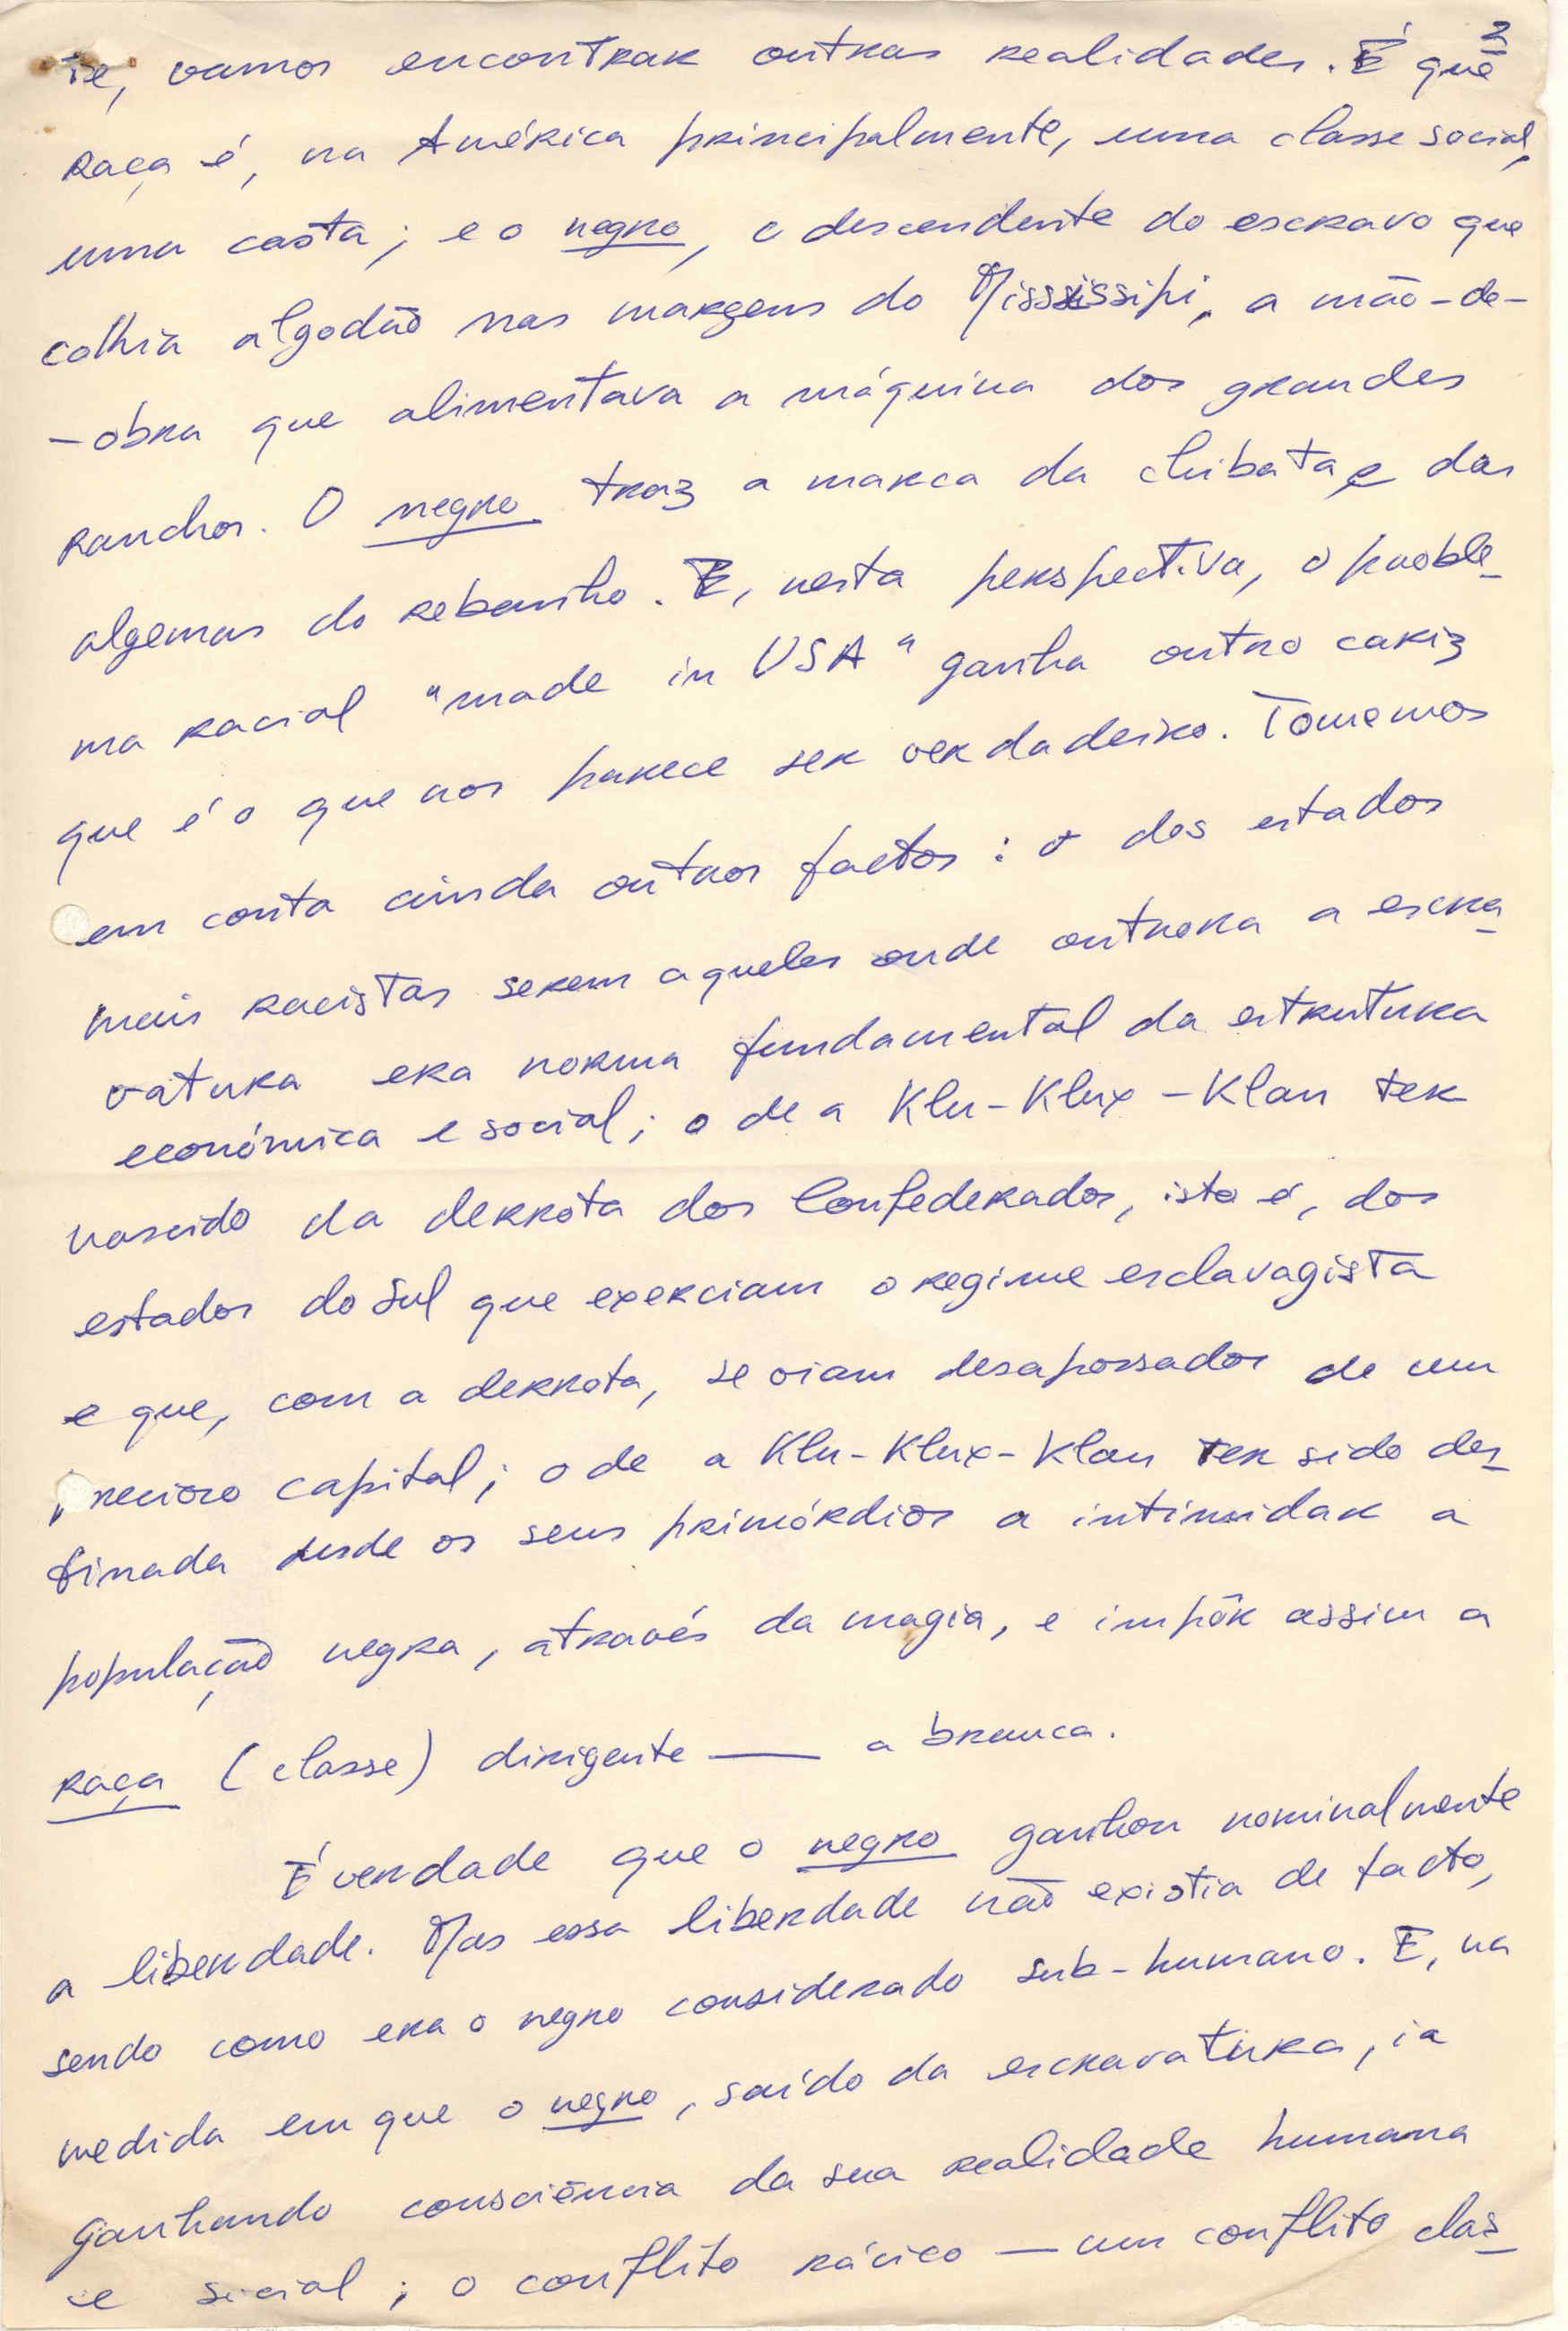 2
te, vamos encontrar outras realidades. É que
raça é, na América principalmente, uma classe social,
uma casta; e o negro, o descendente do escravo que
colhia algodão nas margens do Mississsipi, a mão-de-
-obra que alimentava a máquina dos grandes
ranchos. O negro traz a marca da chibata e das
algemas do rebanho. E, nesta perspectiva, o proble-
ma racial "made in USA" ganha outro cariz
que é o que nos parece ser verdadeiro. Tomemos
em conta ainda outros factos: o dos estados
mais racistas serem aqueles onde outrora a escra-
vatura era norma fundamental da estrutura
económica e social; o de a Klu-Klux-Klan ter
nascido da derrota dos Confederados, isto é, dos
estados do Sul que exerciam o regime esclavagista
e que, com a derrota, se viam desapossados de um
precioso capital; o de a Klu-Klux-Klan ter sido des-
tinada desde os seus primórdios a intimidar a
população negra, através da magia, e impôr assim a
raça (classe) dirigente — a branca.
É verdade que o negro ganhou nominalmente
a liberdade. Mas essa liberdade não existia de facto,
sendo como era o negro considerado sub-humano. E, na
medida em que o negro, saído da escravatura, ia
ganhando consciência da sua realidade humana
e social; o conflito rácico — um conflito clas-